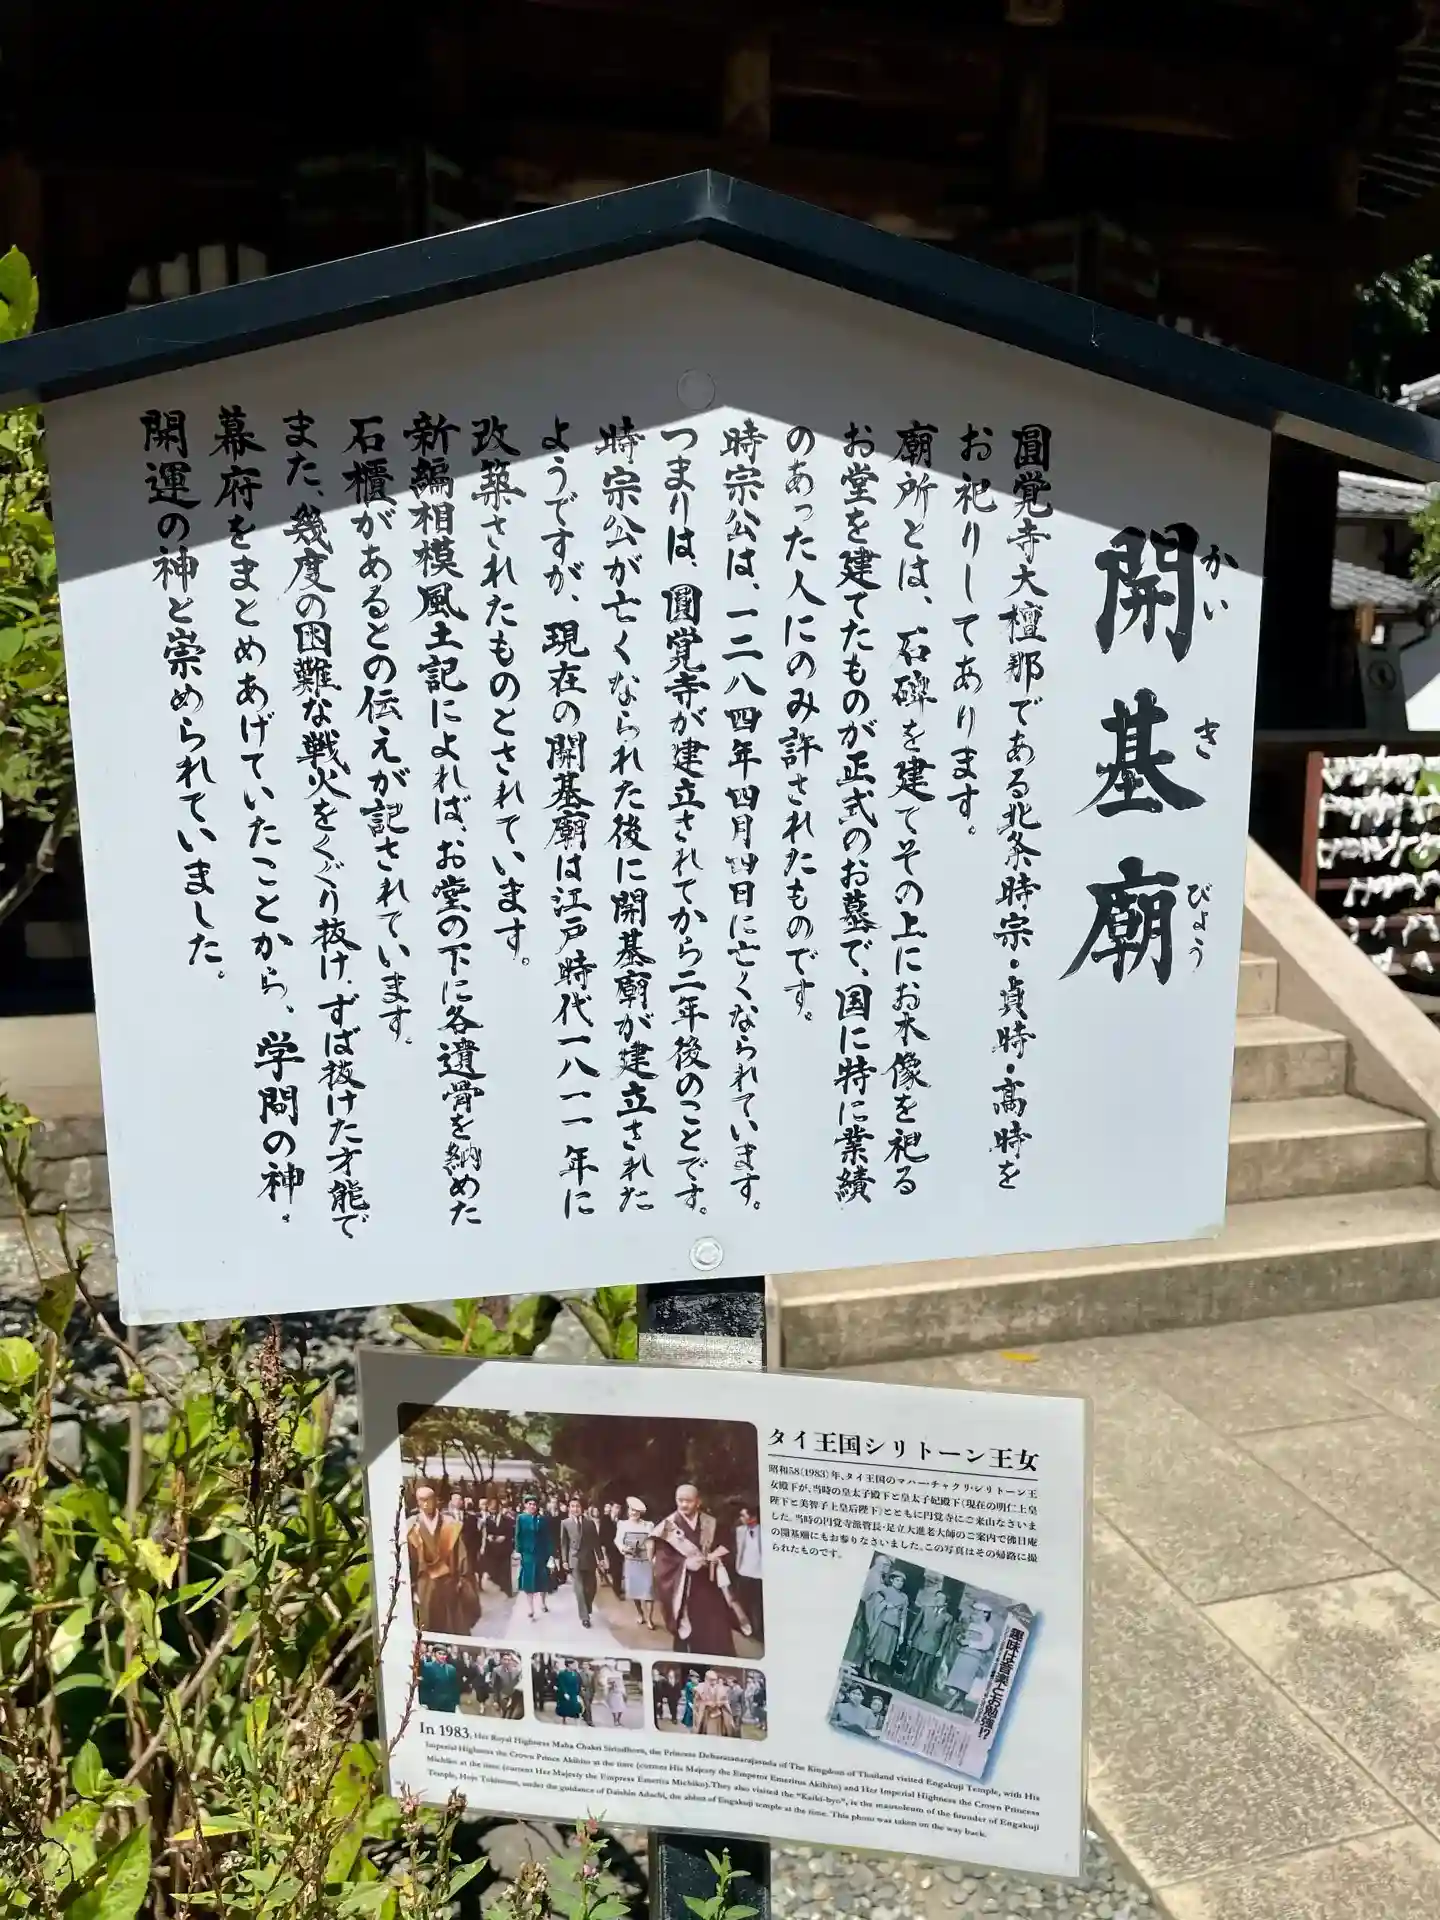 開基廟
かい き びょう
圓覚寺大檀那である北条時宗・貞時・高時を
お祀りしてあります。
廟所とは、石碑を建てその上にお木像を祀る
お堂を建てたものが正式のお墓で、国に特に業績
のあった人にのみ許されたものです。
時宗公は、一二八四年四月四日に亡くなられています。
つまりは、圓覚寺が建立されてから二年後のことです。
時宗公が亡くなられた後に開基廟が建立された
ようですが、現在の開基廟は江戸時代一八一一年に
改築されたものとされています。
新編相模風土記によれば、お堂の下に各遺骨を納めた
石櫃があるとの伝えが記されています。
また、幾度の困難な戦火をくぐり抜け、ずば抜けた才能で
幕府をまとめあげていたことから、学問の神、
開運の神と崇められていました。
タイ王国シリトーン王女
昭和58(1983)年、タイ王国のマハー・チャクリ・シリトーン王
女殿下が、当時の皇太子殿下と皇太子妃殿下(現在の明仁上皇
陛下と美智子上皇后陛下)とともに円覚寺にご来山なさいま
した。当時の円覚寺派管長・足立大進老大師のご案内で佛日庵
の開基廟にもお参りなさいました。この写真はその帰路に撮
られたものです。
趣味は音楽とお勉強!?
In 1983, Her Royal Highness Maha Chakri Sirindhorn, the Princess Debaratanarajasuda of The Kingdom of Thailand visited Engakuji Temple, with His
Imperial Highness the Crown Prince Akihito at the time (current His Majesty the Emperor Emeritus Akihito) and Her Imperial Highness the Crown Princess
Michiko at the time (current Her Majesty the Empress Emerita Michiko).They also visited the "Kaiki-byo", is the mausoleum of the founder of Engakuji
Temple, Hojo Tokimune, under the guidance of Daishin Adachi, the abbot of Engakuji temple at the time. This photo was taken on the way back.